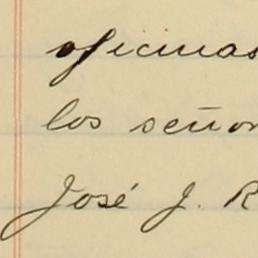 oficinas
los señor
José J. R